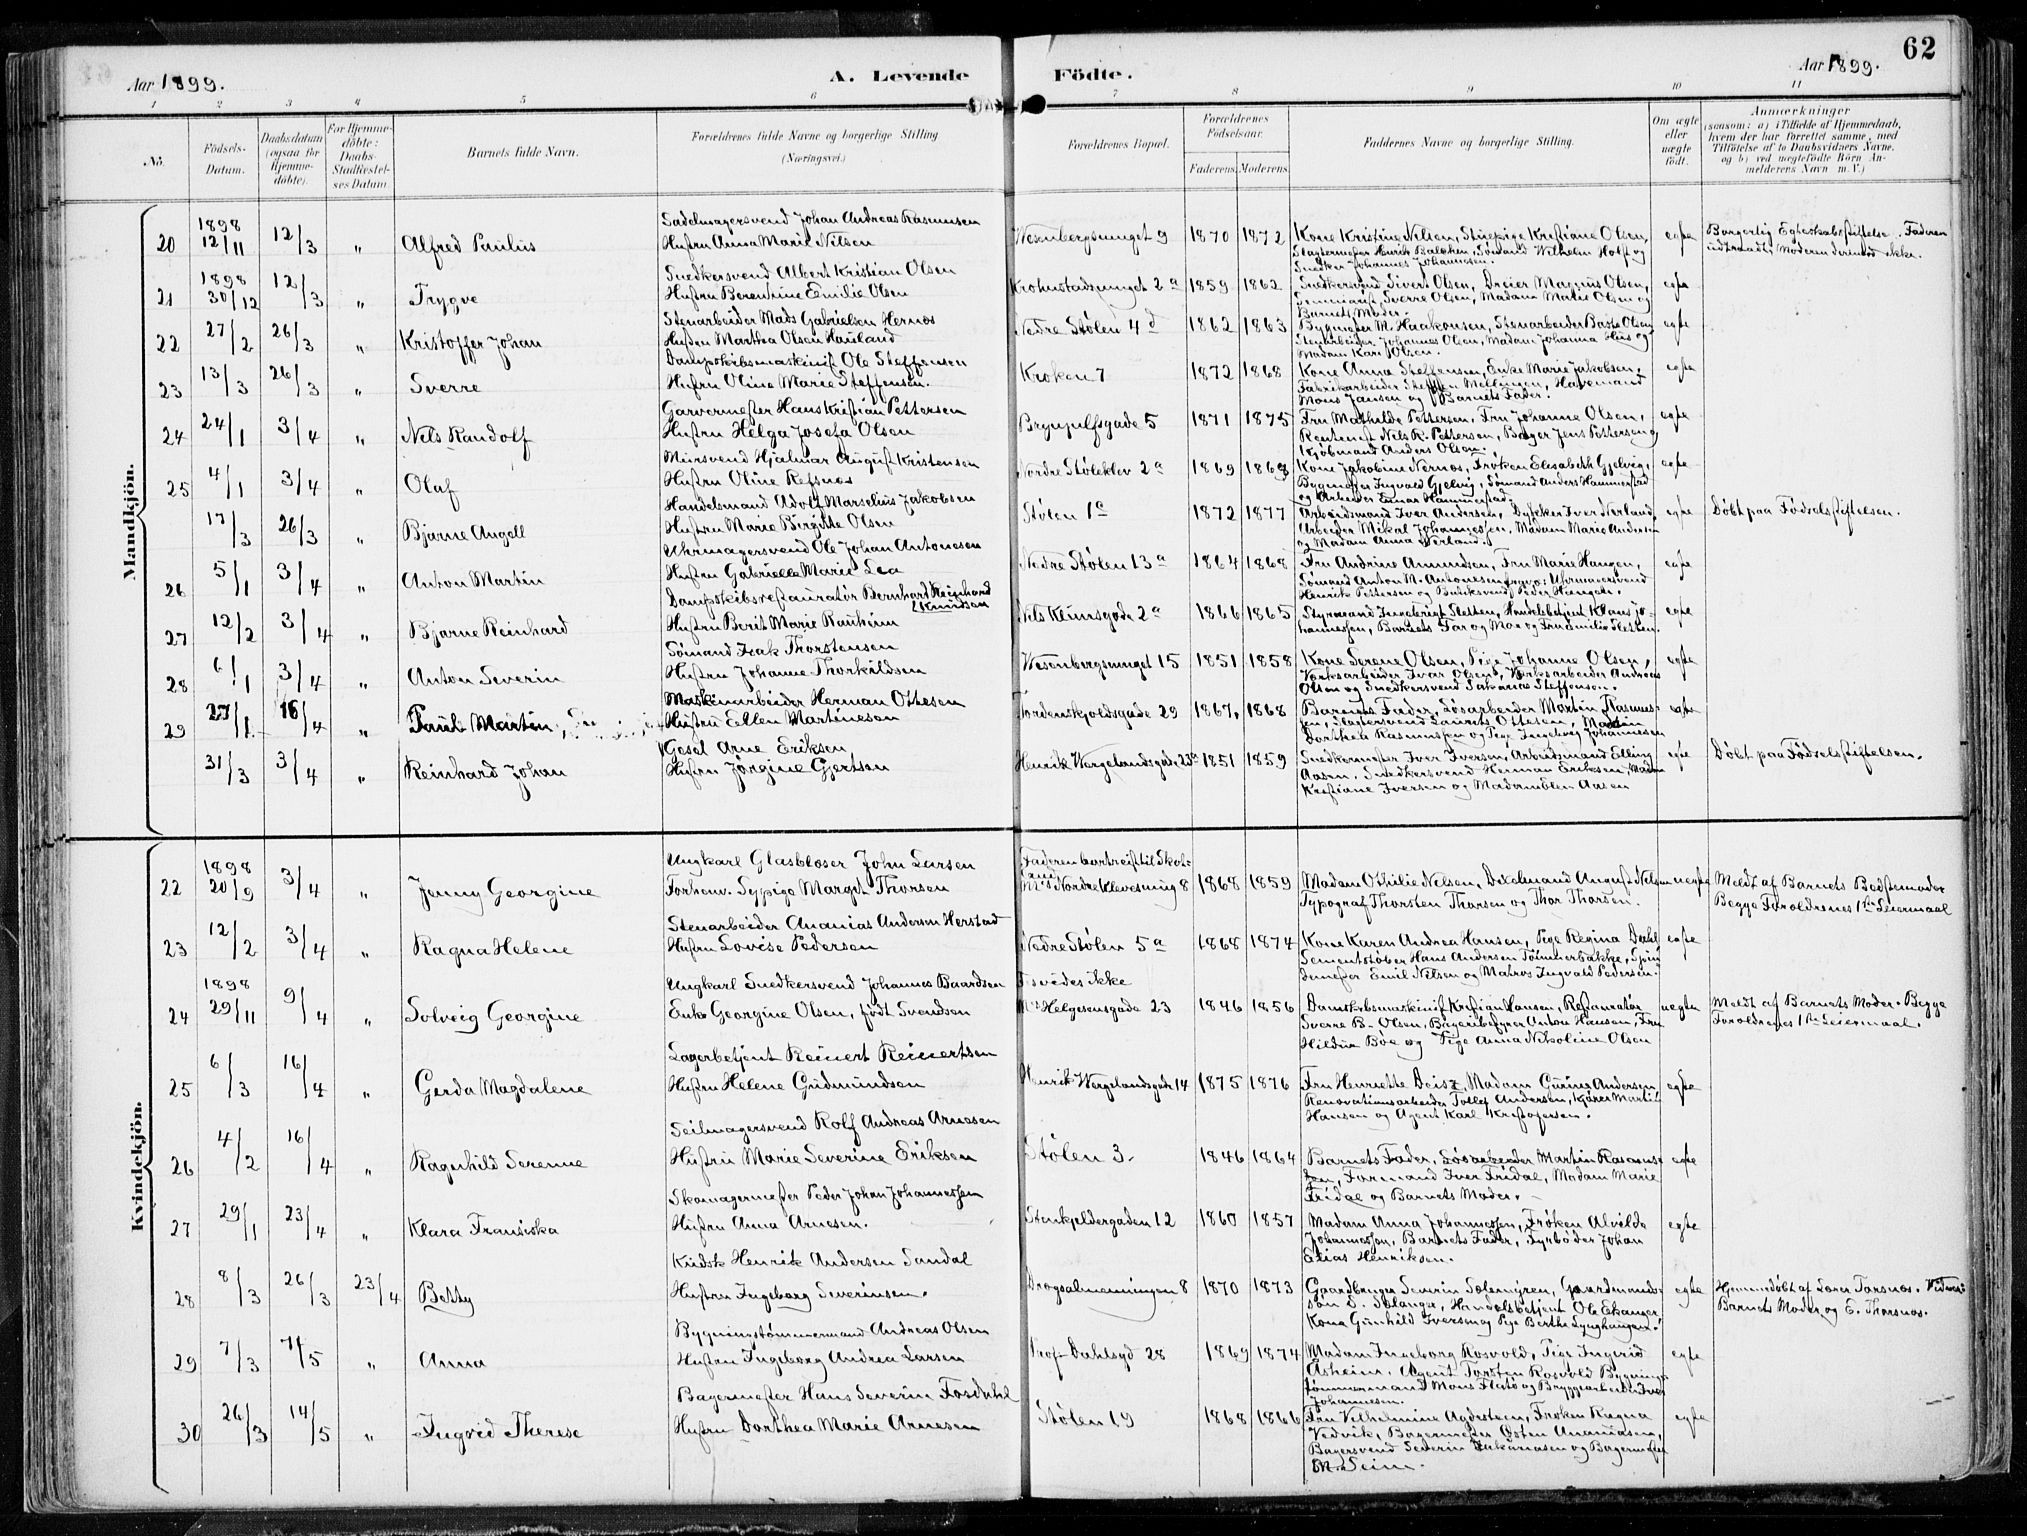 62
Aar 1899.
A. Levende Födte.
Aar 1899.
1 2 3 4 5 6 7 8 9 10 11
No.
Födsels-Datum.
Daabsdatum (ogsaa for Hjemme-döbte).
For Hjemme-döbte: Daabs-Stadfæstel-ses Datum.
Barnets fulde Navn.
Forældrenes fulde Navne og borgerlige Stilling (Næringsvei.)
Forældrenes Bopæl.
Forældrenes Födselsaar.
Faderens. Moderens.
Faddernes Navne og borgerlige Stilling.
Om ægte eller uægte födt.
Anmærkninger
(saasom: a) i Tilfælde af Hjemmedaab, hvem der har forrettet samme, med Tilföielse af to Daabsvidners Navne, og b) ved uægtefödte Börn An-melderens Navn m. V.)
Mandkjön.
20 1898 12/11 12/3 " Alfred Paulus
Sadelmagersvend Johan Andreas Rasmussen
Hustru Anna Marie Nilsen
Wesenbergsmuget 9 1870 1872
Kone Kristine Nelsen, Kristiane Olsen,
egte
Borgerlig Egteskabsstiftelse. Faderen
udtraadt, Moderen derimod ikke.
21 1898 30/12 12/3 " Trygve
Snedkersvend Albert Kristian Olsen
Hustru Berenthine Emilie Olsen
Krohnstadsmuget 2a 1859 1862
Snedkersvend Sivert Olsen, Dreier Magnus Olsen,
Sverre Olsen, Madam Marie Olsen og
Barnets Moder.
egte
22 27/2 26/3 " Kristoffer Johan
Stenarbeider Mads Gabrielsen Hernos
Hustru Marthea Olsen Hauland
Nedre Stølen 4d 1862 1863
Bygmester M. Haakonsen, Stenarbeider Baste Olsen
Stenarbeider Johannes Olsen, Madam Johanna Hus og
Madam Kari Olsen.
egte
23 13/3 26/3 " Sverre
Dampskibsmaskinist Ole Steffensen
Hustru Oline Marie Steffensen.
Kroken 7 1872 1868
Kone Anna Steffensen, Enke Marie Jakobsen,
Fabrikarbeider Steffen Mellingen, Havemand
Mons Jansen og Barnets Fader.
egte
24 24/1 3/4 " Nils Randolf
Garvermester Hans Kristian Pettersen
Hustru Helga Josefa Olsen
Brynjulfsgade 5 1871 1875
Fru Mathilde Pettersen, Fru Johanne Olsen,
Rentenist Nils R. Pettersen, Bager Jens Pettersen og
Kjøbmand Anders Olsen.
egte
25 4/1 3/4 " Olaf
Mursvend Hjalmar August Kristensen
Hustru Oline Refsnos
Nordre Stølekleiv 2a 1869 1868
Kone Jakobine Nernos, Frøken Elisabeth Gjelvig,
Bygmester Ingvald Gjelvig, Sømand Anders Hammerstad
og Arbeider Einar Hammerstad.
egte
17/3 26/3 " Bjarne Angell
Handelsmand Adolf Marselius Jakobsen
Hustru Marie Birgitte Olsen
Stølen 1a 1872 1877
Arbeidsmand Iver Andersen, Dykker Iver Nerland,
Arbeider Mikal Johannessen, Madam Marie Andersen
og Madam Anna Nerland.
egte
Døbt paa Fødselstiftelsen.
26 5/1 3/4 " Anton Martin
Uhrmagersvend Ole Johan Antonesen
Hustru Gabrielle Marie Lea
Nedre Stølen 13a 1864 1868
Fru Andrine Amundsen, Fru Marie Haugen,
Sømand Anton M. Antonesen, Uhrmagersvend
Henrik Pettersen og Butiksvend Peder Haugen.
egte
27 12/2 3/4 " Bjarne Reinhard
Dampskibsrestauratør Bernhard Reinhard Knudsen
Hustru Berit Marie Rauheim
Nils Klimsgade 2a 1866 1865
Styrmand Ingebrigt Sletten, Handelsbetjent Klaus Jo-
hannessen, Barnets Far og Mor og Fru Emilie Sletten.
egte
28 6/1 3/4 " Anton Severin
Sømand Isak Thorstensen
Hustru Johanne Thorkildsen
Wesenbergsmuget 15 1851 1858
Kone Serene Olsen, Pige Johanne Olsen,
Verksarbeider Ivar Olsen, Verksarbeider Andreas
Olsen og Snedkersvend Sakarias Steffensen.
egte
29 27/1 16/4 " Paul Martin
Maskinarbeider Herman Ottesen
Hustru Ellen Martinesen
Tordenskjoldsgade 29 1867 1868
Barnets Fader, Løsarbeider Martin Rasmus-
sen, Slagtersvend Laurits Ottesen, Madam
Dorthea Rasmussen og Pige Ingeborg Johannesen
egte
31/3 3/4 " Reinhard Johan
Gesel Arne Eriksen
Hustru Jørgine Gjertsen
Henrik Wergelandsgade 23a 1851 1859
Snedkermester Iver Iversen, Arbeidsmand Elling
Aasen, Snedkersvend Herman Eriksen, Madam
Kristiane Iversen og Madam Ellen Aasen
egte
Døbt paa Fødselstiftelsen.
Kvindekjön.
22 1898 20/9 3/4 " Jenny Georgine
Ungkarl Glasbloser John Larsen
Forhenv. Sypige Margit Thorsen
Faderen bortreist til Skot-
land
M's Nordre Klevesmug 8 1868 1859
Madam Othilie Nelsen, August Nelsen
Typograf Thorsten Thorsen og Thor Thorsen.
uegte
Meldt af Barnets Bedstemoder
Begge Foreldrenes 1ste Leiermaal
23 12/2 3/4 " Ragna Helene
Stenarbeider Ananias Andersen Herstad
Hustru Lovise Pedersen
Nedre Stølen 5a 1868 1874
Kone Karen Andrea Hansen, Pige Regina Dahl
Sementstøber Hans Andersen Tømmerbakke, Spin-
demester Emil Nelsen og Matros Ingvald Pedersen.
egte
24 1898 29/11 9/4 " Solveig Georgine
Ungkarl Snedkersvend Johannes Baardsen
Enke Georgine Olsen, født Svendsen
F's vides ikke
M's Helgesensgade 23 1846 1856
Dampskibsmaskinist Kristian Hansen, Restauratør
Sverre B. Olsen, Bageribestyrer Anton Hansen, Fru
Hildur Bøe og Pige Anna Nikoline Olsen
uegte
Meldt af Barnets Moder. Begge
Foreldrenes 1ste Leiermaal.
25 6/3 16/4 " Gerda Magdalene
Lagerbetjent Reinert Reinertsen
Hustru Helene Gudmundsen
Henrik Wergelandsgade 14 1875 1876
Fru Henriette Deisz, Madam Gurine Andersen,
Renovationsarbeider Tollef Andersen, Kjører Martin
Hansen og Agent Karl Kristofersen.
egte
26 4/2 16/4 " Ragnhild Serenne
Seilmagersvend Rolf Andreas Arnesen
Hustru Marie Severine Eriksen
Stølen 3. 1846 1864
Barnets Fader, Løsarbeider Martin Rasmus-
sen, Formand Iver Fridal, Madam Marie
Fridal og Barnets Moder.
egte
27 29/1 23/4 " Klara Fransiska
Skomagermester Peder Johan Johannessen
Hustru Anna Arnesen.
Stenkjeldergaden 12 1860 1857
Madam Anna Johannessen, Frøken Alvilde
Johannessen, Barnets Fader, Fyrbøder Johan
Elias Henriksen.
egte
28 8/3 26/3 23/4 Betty
Kudsk Henrik Andersen Sandal
Hustru Ingeborg Severinsen.
Dragsalmenningen 8 1870 1873
Gaardbruger Severin Solemyren, Gaardmands-
søn S. Solanger, Handelsbetjent Ole Ekanger
Kone Gunhild Iversen og Pige Berthe Lynghaugen.
egte
Hjemmedøbt af Lærer Torsnos. Vidner:
Barnets Moder og E. Thorsnos.
29 7/3 7/5 " Anna
Bygningstømmermand Andreas Olsen
Hustru Ingeborg Andrea Larsen
Prof. Dahlsgd 28 1869 1874
Madam Ingeborg Rosvold, Pige Ingerid
Asheim, Agent Torsten Rosvold Bygnings-
tømmermand Mons Flatø og Bryggearbeider Iver
Johannesen.
egte
30 26/3 14/5 " Ingrid Therese
Bagermester Hans Severin Fosdahl
Hustru Dorthea Marie Arnesen
Stølen 19 1868 1866
Fru Vilhelmine Agdestein, Frøken Ragna
Vedvik, Bagermester Østen Ananiasen,
Bagersvend Severin Sakariasen og Bagermester
M. Seim.
egte